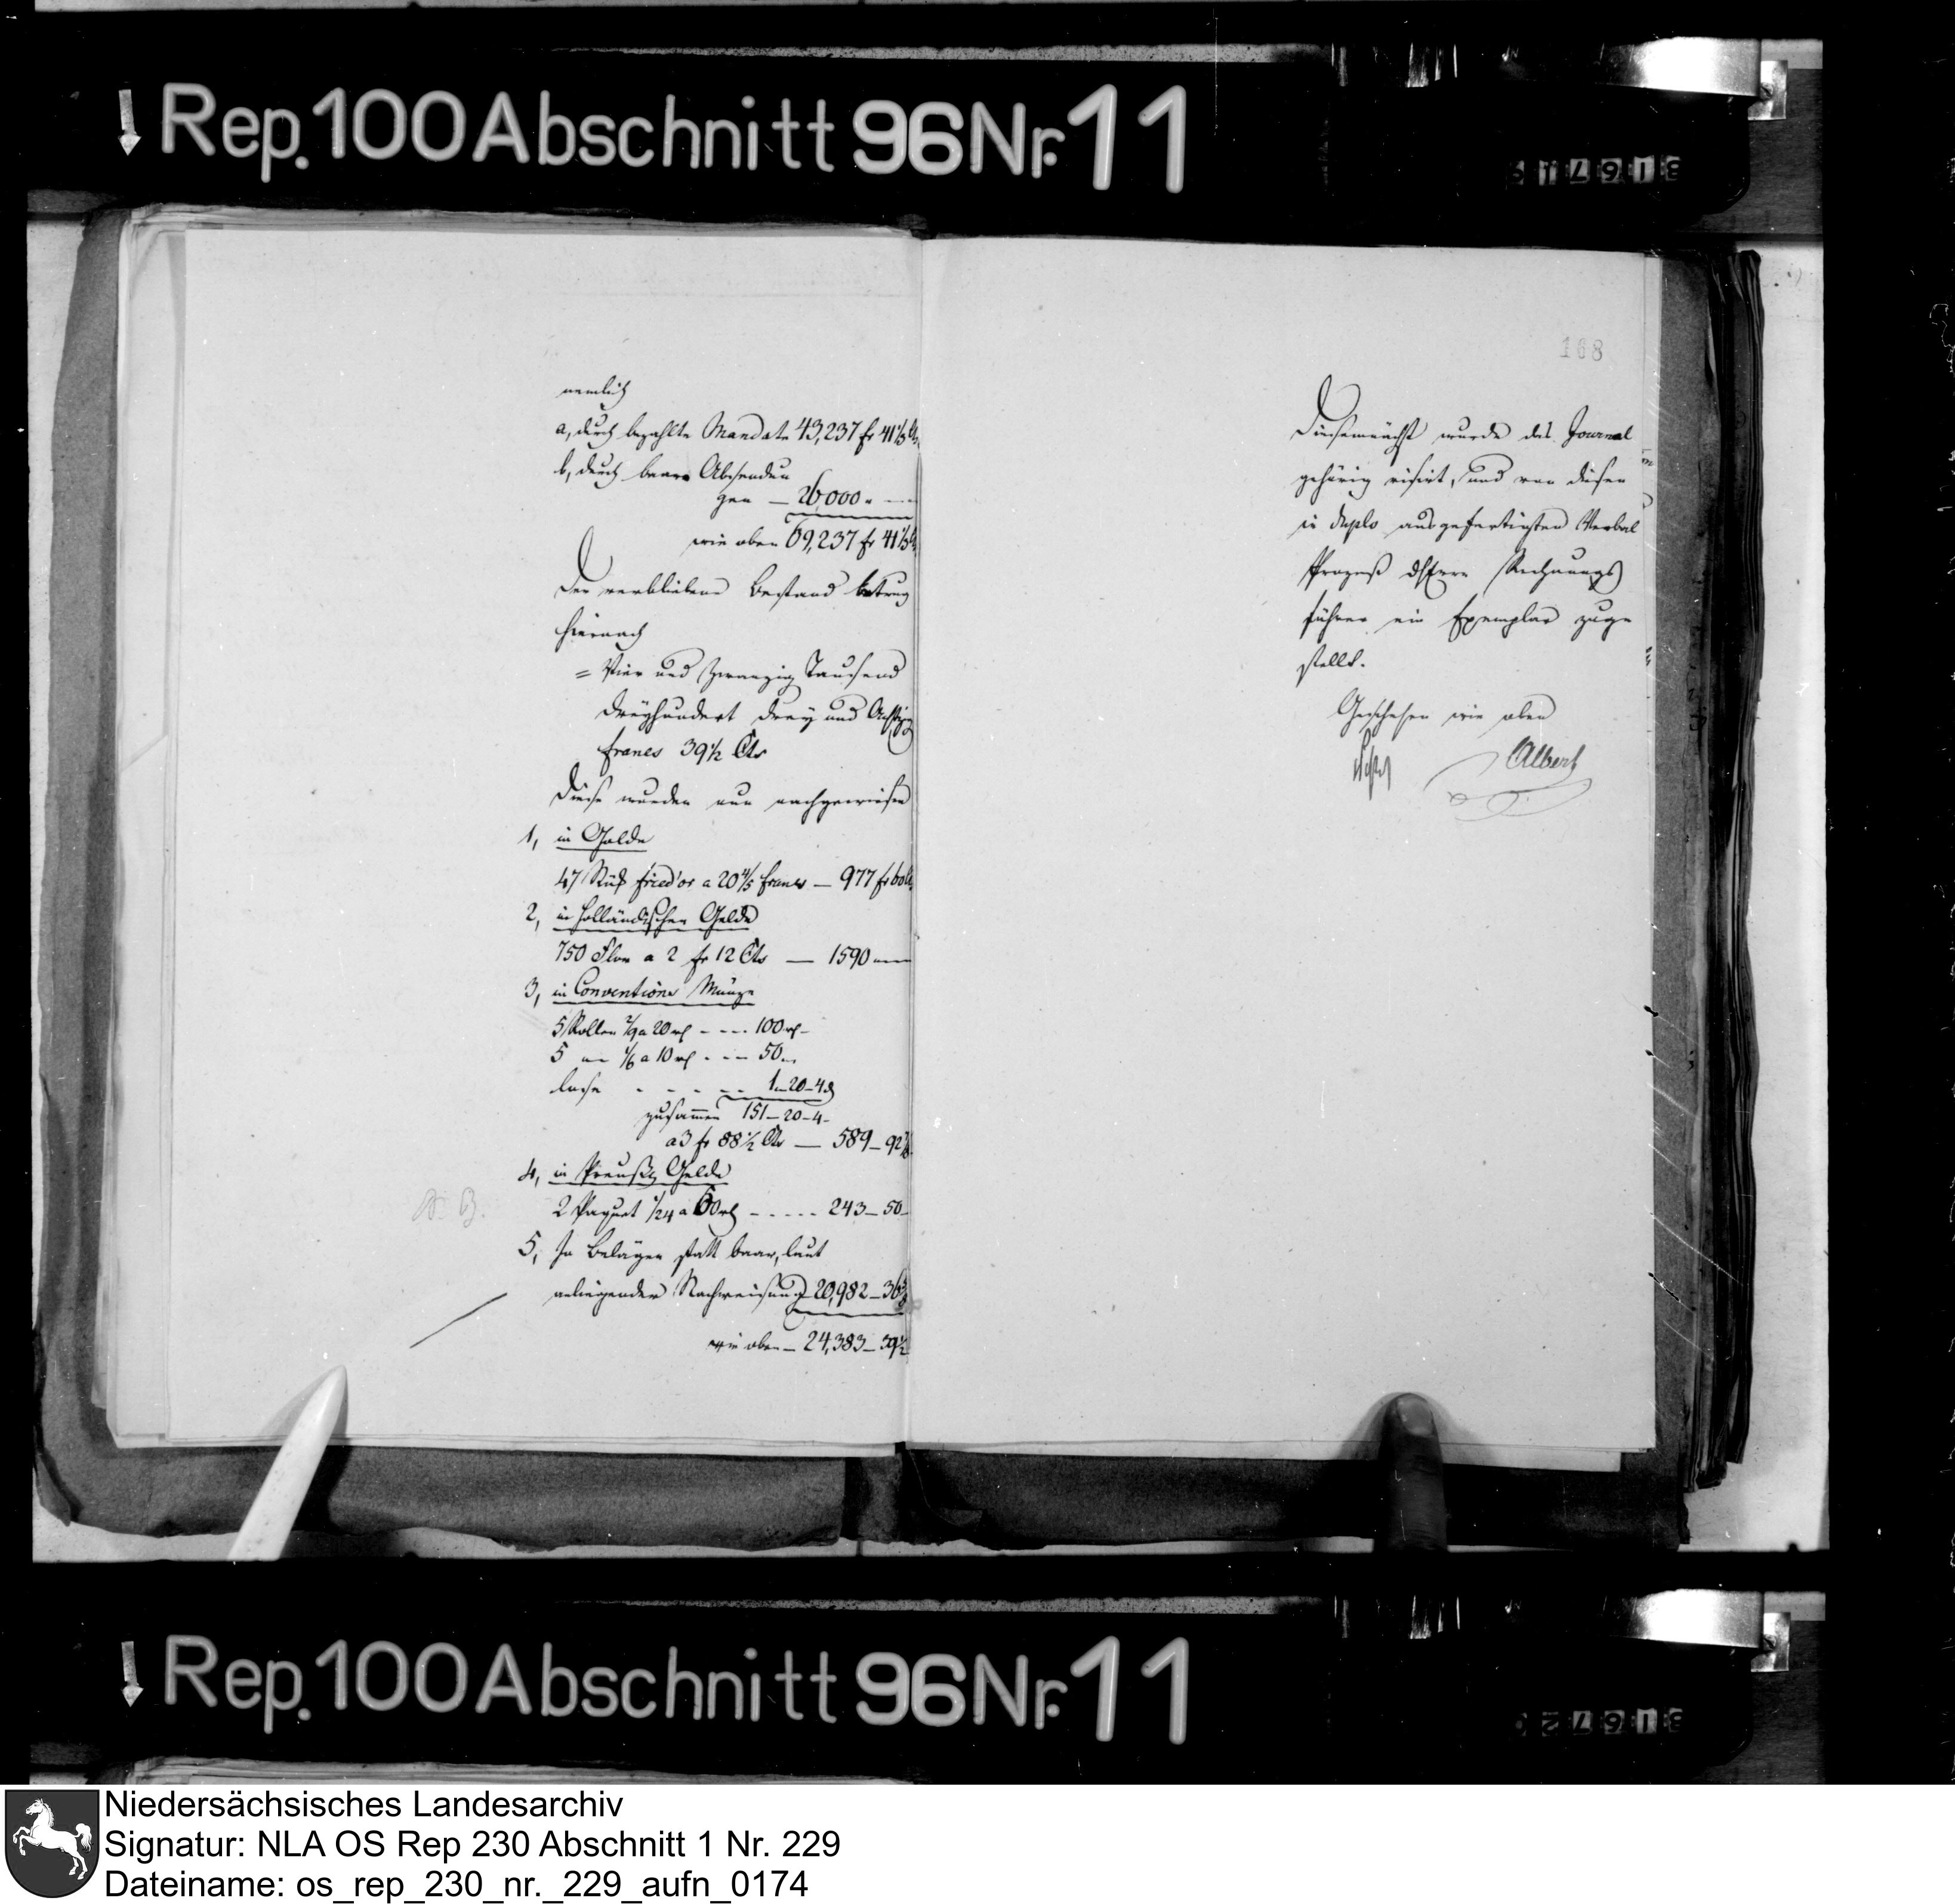 Rep. 100 Abschnitt 96 Nr. 11
168
nemlich
a, durch bezahlte Mandate 43,237 fr 41⅓ Cts
b, durch baare Absendun
gen — 26,000 " —
wie oben 69,237 fr 41⅓ Cts
Der verbliebene Bestand betrug
hiernach
= Vier und zwanzig Tausend
dreyhundert drey und Achtzig
francs 39½ Cts
Diese wurden nun nachgewiesen
1, in Golde
47 Stück fried'or a 20⅘ francs — 977 fr 60 Cts
2, in holländischen Gelde
750 Flor a 2 fr 12 Cts — 1590
3, in Conventions Münze
5 Rollen a 20 rthl - - - 100 rthl -
5 — ⅙ a 10 rthl - - - 50
lose - - - - - 1 - 20 - 4 d
zusammen 151 - 20 - 4 -
a 3 fr 88½ Cts — 589 - 92
4, in Preußs. Gelde
N. B.
2 Paquet 1/24 a 60 rthl - - - - - 243 - 50 -
5, In Belägen statt baar, laut
anliegender Nachweisung 20,982 - 36
wie oben — 24,383 - 39½
Diesemnächst wurde das Journal
gehörig visirt, und von diesem
in duplo ausgefertigten Verbal
Prozeß dHerrn Rechnungs
führer ein Exemplar zuge
stellt.
Geschehen wie oben
Albert
Rep. 100 Abschnitt 96 Nr. 11
Niedersächsisches Landesarchiv
Signatur: NLA OS Rep 230 Abschnitt 1 Nr. 229
Dateiname: os_rep_230_nr._229_aufn_0174